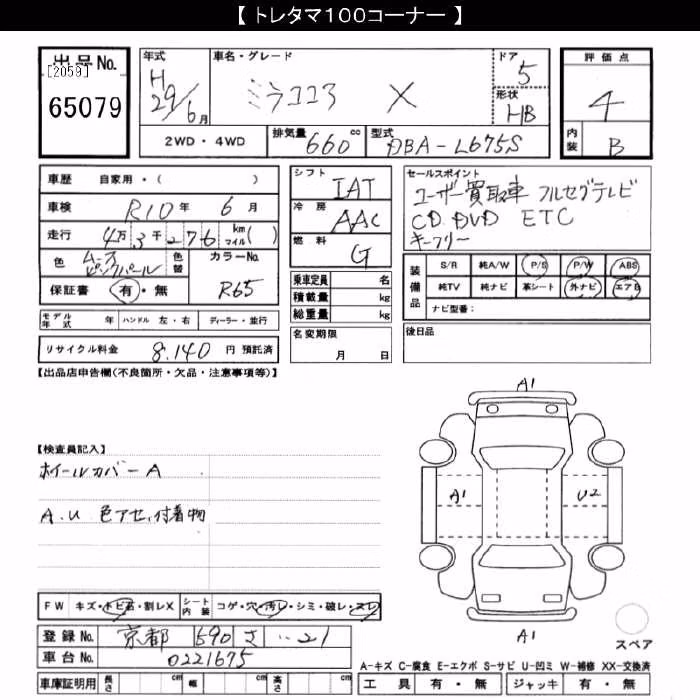 【 トレタマ100コーナー 】
出品No.
[2059]
65079
年式
H29/6月
車名・グレード
ミラココア X
ドア
5
形状
HB
評価点
4
内装
B
2WD・4WD
排気量 660 cc
型式 DBA-L675S
車歴 自家用・( )
車検 R10年 6月
走行 4万3千276 km マイル( )
色 ムースピンクパール
色替
カラーNo.
R65
保証書 有・無
モデル年式 年
ハンドル 左・右
ディーラー・並行
リサイクル料金 8,140 円 預託済
シフト IAT
冷房 AAC
燃料 G
乗車定員 名
積載量 kg
総重量 kg
名変期限
月 日
セールスポイント
ユーザー買取車 フルセグテレビ
CD DVD ETC
キーフリー
装備品
S/R 純A/W P/S P/W ABS
純TV 純ナビ 革シート 外ナビ エアB
ナビ型番:
後日品
【出品店申告欄(不良箇所・欠品・注意事項等)】
【検査員記入】
ホイールカバーA
A.U 色アセ、付着物
A1
A1
U2
A1
スペア
FW キズ・トビ石・割レX
シート内装 コゲ・穴・汚レ・シミ・破レ・スレ
登録No. 京都 590 さ ・・21
車台No. 0221675
車庫証明用 長さ cm 幅 cm 高さ cm
A-キズ C-腐食 E-エクボ S-サビ U-凹ミ W-補修 XX-交換済
工具 有・無 ジャッキ 有・無